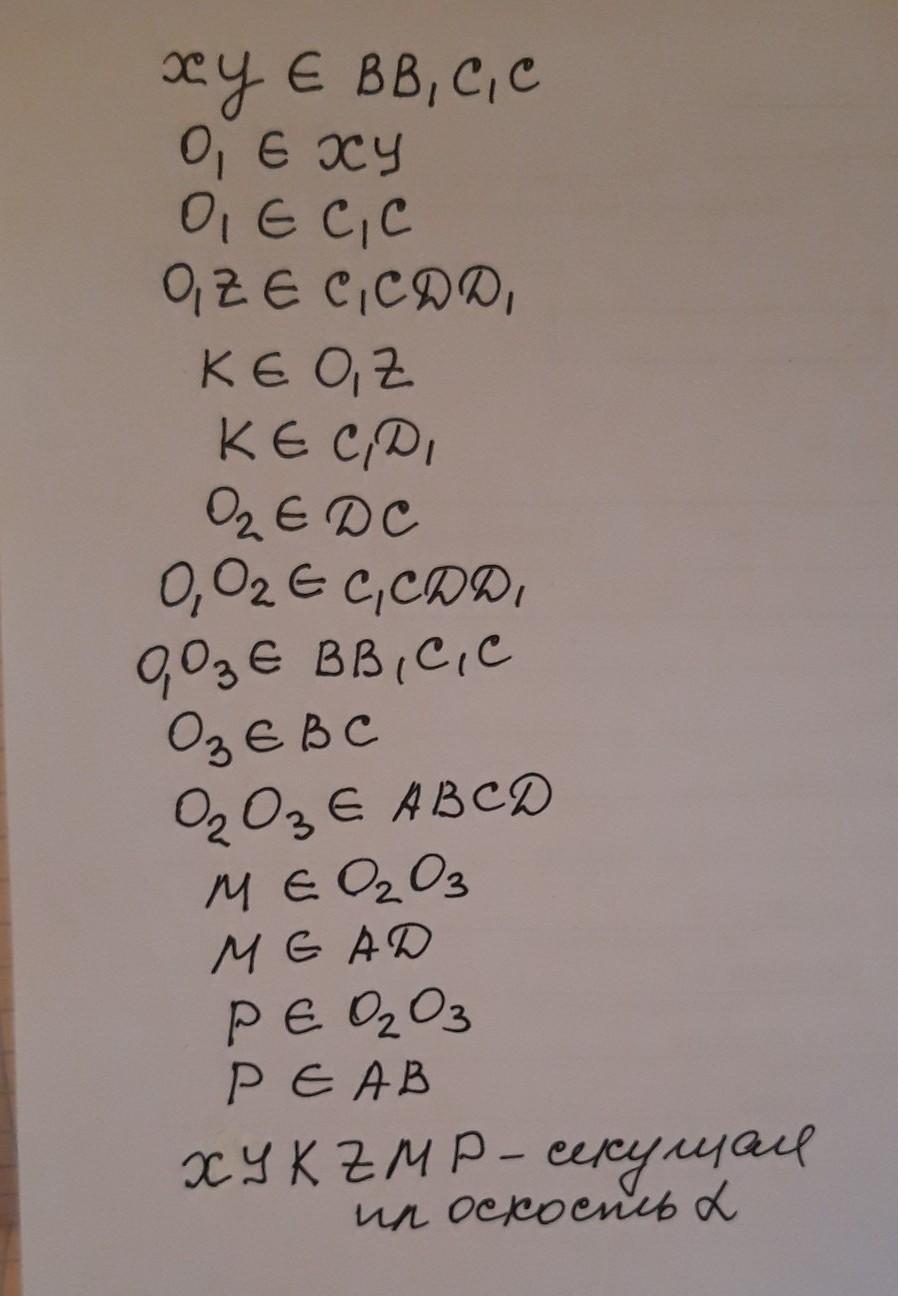 xy ∈ BB₁C₁C
O₁ ∈ xy
O₁ ∈ C₁C
O₁Z ∈ C₁CDD₁
K ∈ O₁Z
K ∈ C₁D₁
O₂ ∈ DC
O₁O₂ ∈ C₁CDD₁
O₁O₃ ∈ BB₁C₁C
O₃ ∈ BC
O₂O₃ ∈ ABCD
M ∈ O₂O₃
M ∈ AD
P ∈ O₂O₃
P ∈ AB
xyKZMP – секущая
плоскость α